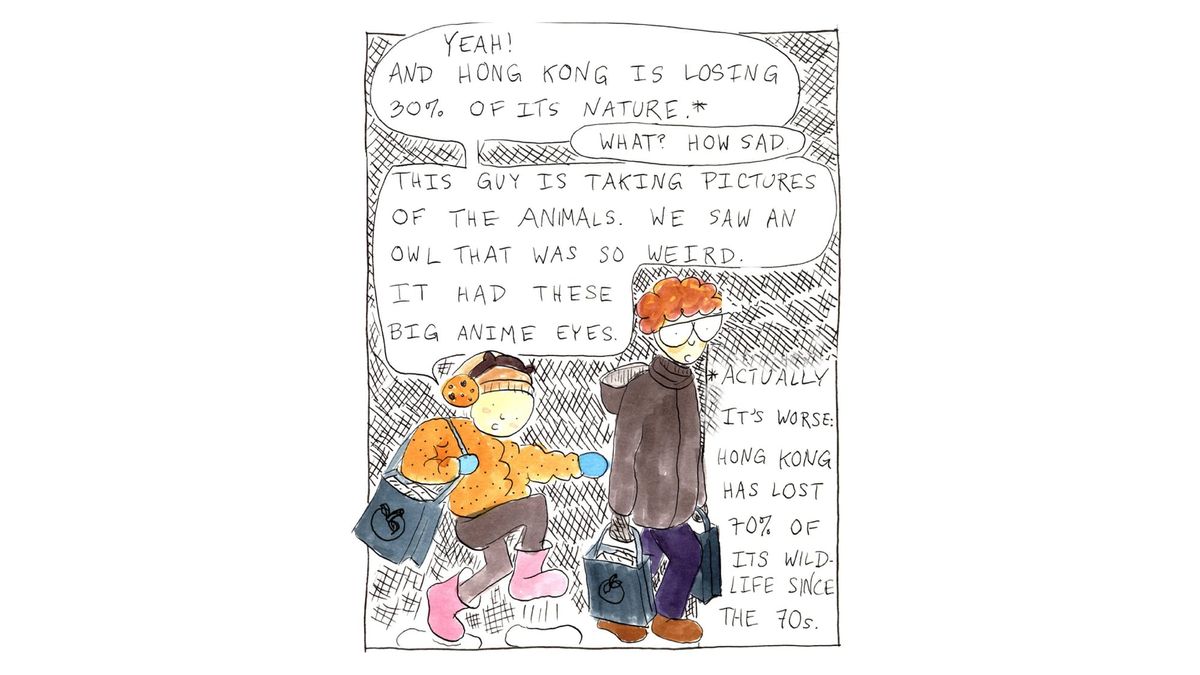 YEAH!
AND HONG KONG IS LOSING
30% OF ITS NATURE.*
WHAT? HOW SAD.
THIS GUY IS TAKING PICTURES
OF THE ANIMALS. WE SAW AN
OWL THAT WAS SO WEIRD.
IT HAD THESE
BIG ANIME EYES.
*ACTUALLY
IT'S WORSE:
HONG KONG
HAS LOST
70% OF
ITS WILD-
LIFE SINCE
THE 70s.